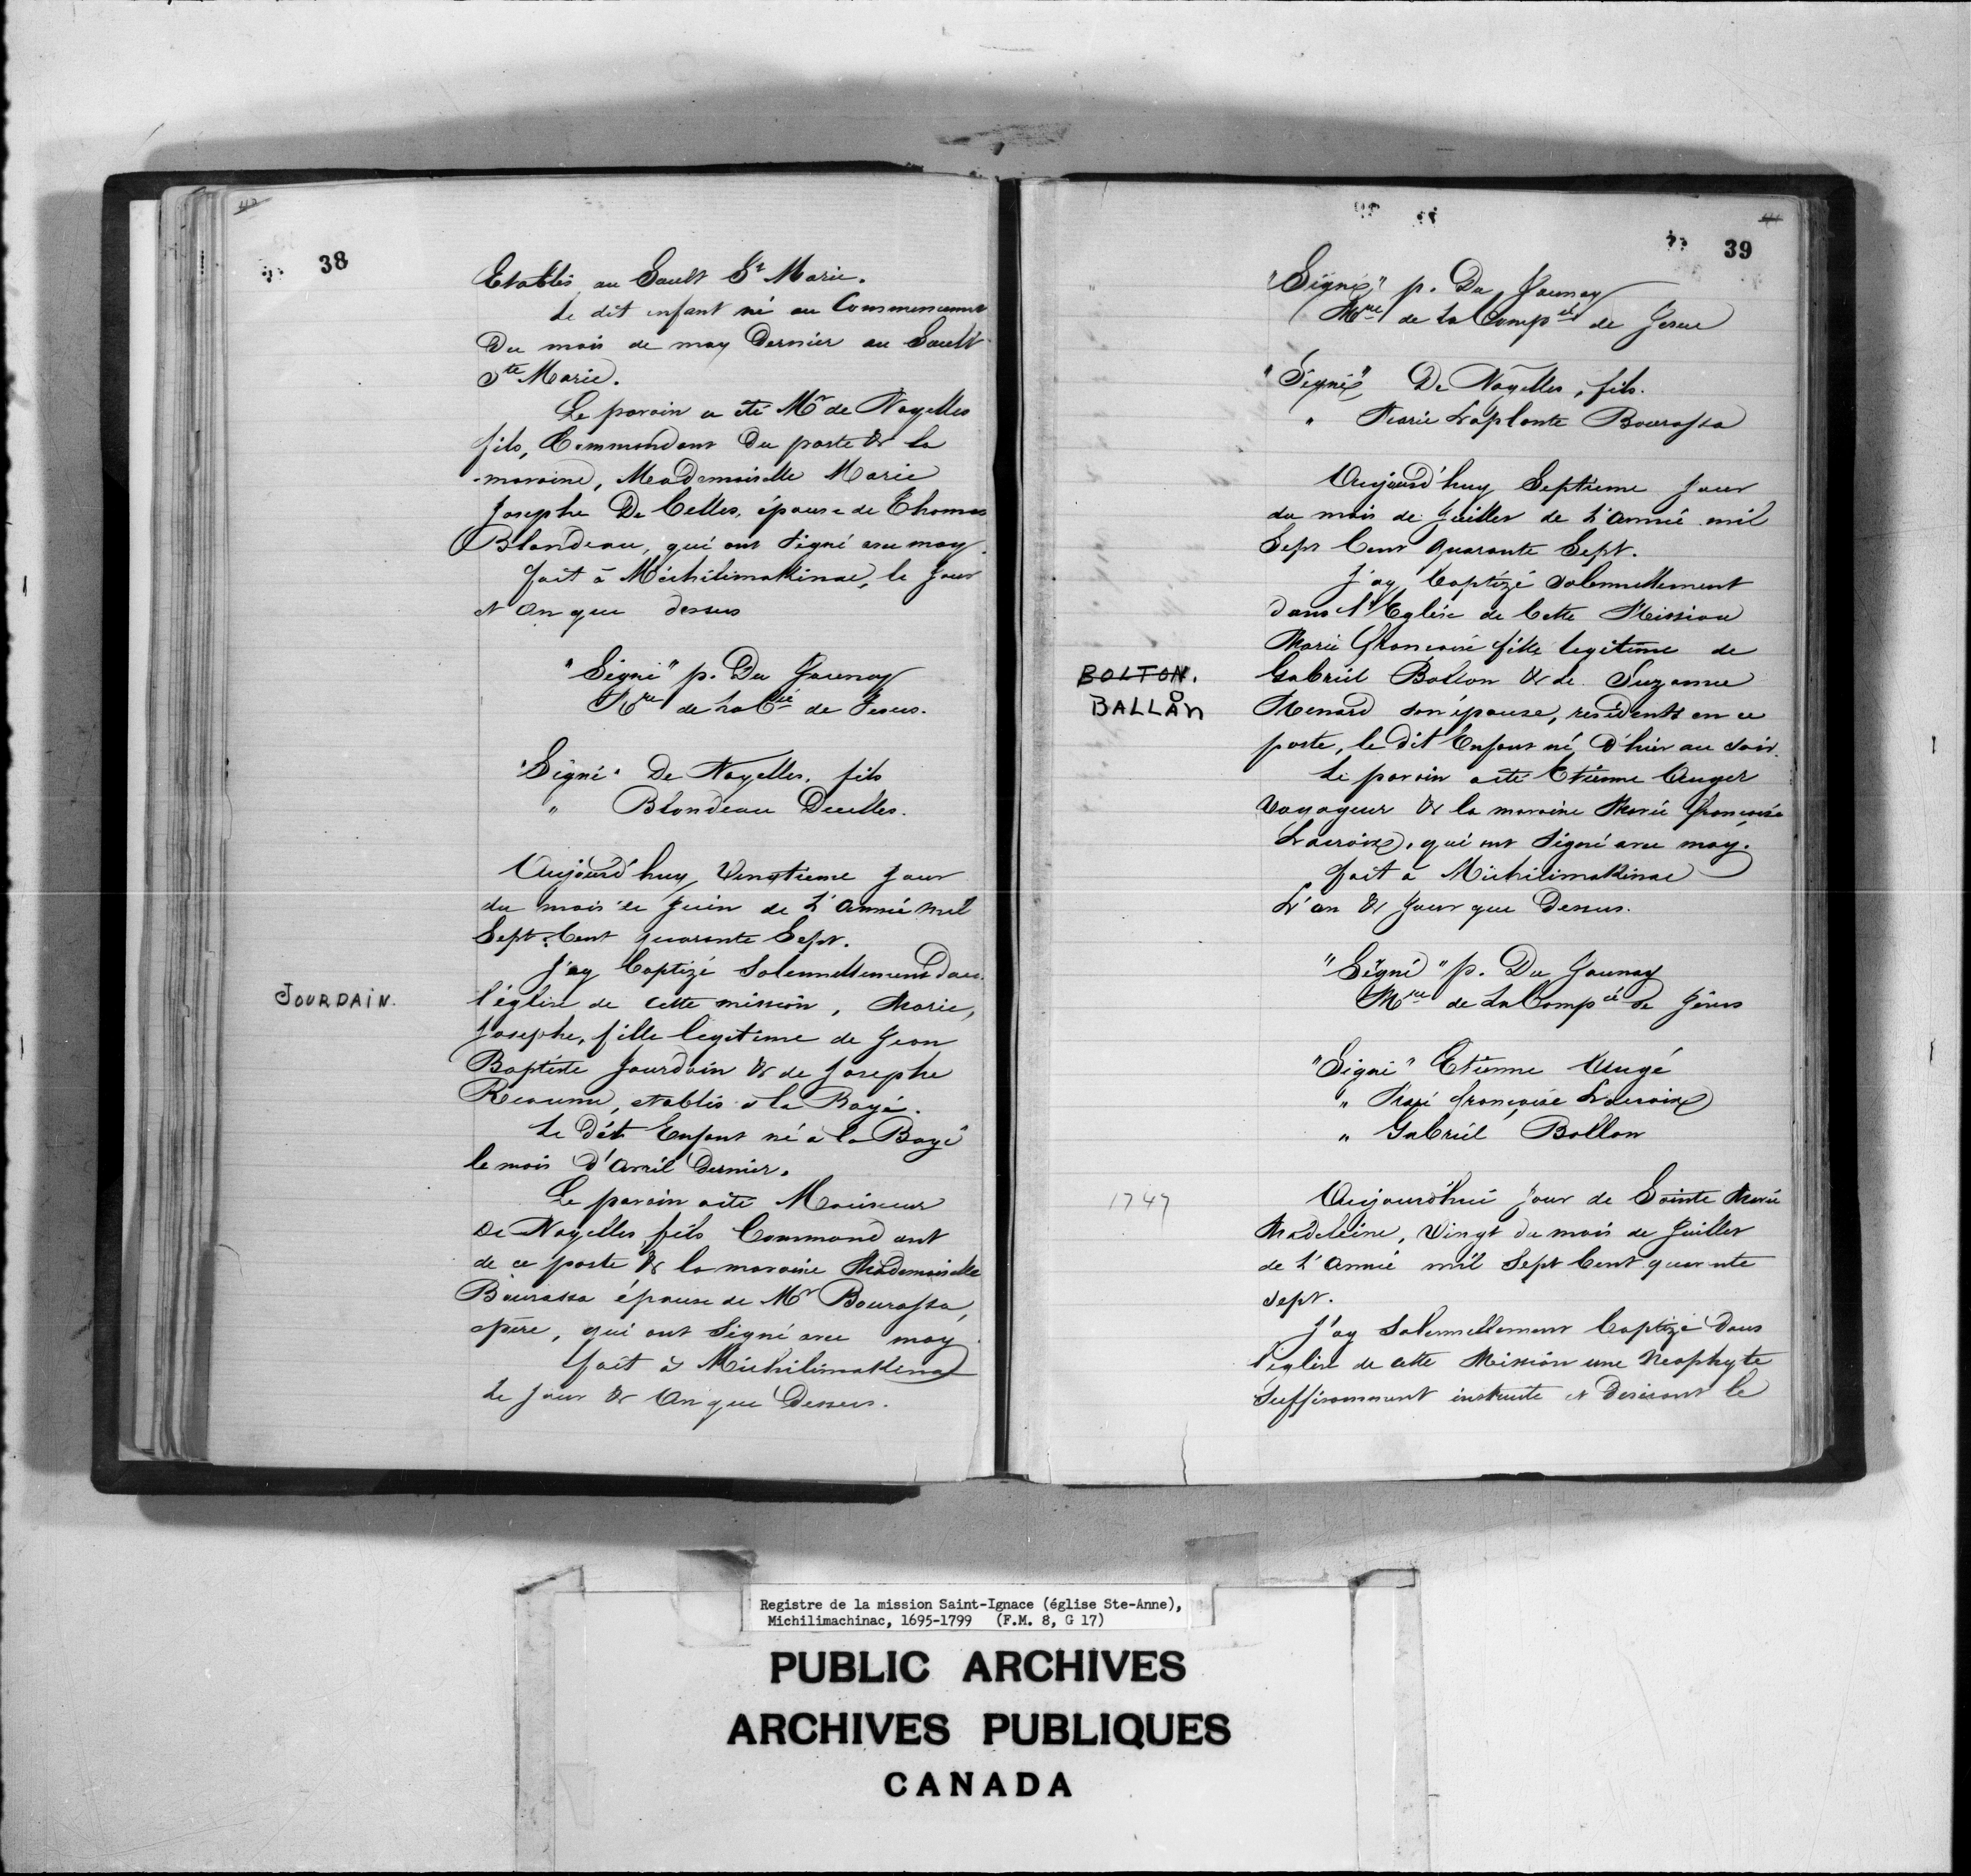 38
Etablis au Sault St Marie.
Le dit enfant né au Commencement
Du mois de may Dernier au Sault
Ste Marie.
Le parain a été Mr de Noyelles
fils, Commendant Du poste & la
maraine, Mademoiselle Marie
Josephe De Celles, épouse de Thomas
Blondeau, qui ont Signé avec moy.
fait à Michilimakinac, le Jour
et An que dessus
"Signé" p. Du Jaunay
de la Cie de Jesus.
"Signé" De Noyelles, fils
" Blondeau Decelles.
Aujourd'huy Vingtieme Jour
du mois de Juin de L'Année mil
Sept. Cent quarante Sept.
JOURDAIN.
J'ay Baptizé Solennellement Dans
l'église de cette mission, Marie,
Josephe, fille legitime de Jean
Baptiste Jourdain & de Josephe
Reaume, etablis à la Baye.
Le Dit Enfant né à la Baye
le mois D'Avril Dernier.
Le parain a été Monsieur
De Noyelles, fils Commandant
de ce poste & la maraine Mademoiselle
Bourassa épouse de Mr Bourassa,
père, qui ont Signé avec moy
fait à Michilimakinac
Le jour & An que Dessus.
39
"Signé" p. Du Jaunay
Mre de La Compie de Jesus
"Signé" De Noyelles, fils.
" Marie Laplante Bourassa
Aujourd'huy Septieme Jour
du mois de Juillet de L'Année mil
Sept Cent Quarante Sept.
J'ay Baptizé Solennellement
dans l'Eglise de Cette Mission
Marie Françoise fille legitime de
BOLTON.
BALLON
Gabriel Bollon & de Suzanne
Menard son épouse, residents en ce
poste, le dit Enfant né D'hier au soir.
Le parain a été Etienne Auger
Voyageur & la maraine Marie françoise
Lacroix, qui ont Signé avec moy.
fait à Michilimakinac
L'an & Jour que Dessus.
"Signé" p. Du Jaunay
Mre de La Compie de Jésus
"Signé" Etienne Augé
" françoise Lacroix
" Gabriel Bollon
1747
Aujourd'hui Jour de Sainte Marie
Madeleine, Vingt du mois de Juillet
de L'Année mil Sept Cent quarante
sept.
J'ay Solennellement Baptizé Dans
l'église de cette Mission une Neophyte
Suffisamment instruite et Desirant le
Registre de la mission Saint-Ignace (église Ste-Anne),
Michilimachinac, 1695-1799 (F.M. 8, G 17)
PUBLIC ARCHIVES
ARCHIVES PUBLIQUES
CANADA